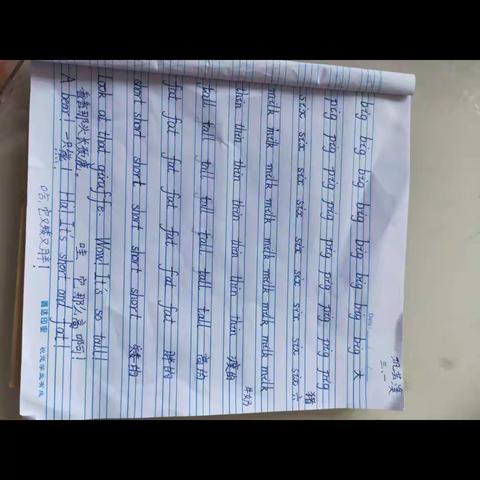 三.一
big big big big big big big big 大
pig pig pig pig pig pig pig pig pig pig 猪
six six six six six six six six six 六
milk milk milk milk milk milk milk milk milk 牛奶
thin thin thin thin thin thin thin 瘦的
tall tall tall tall tall tall tall 高的
fat fat fat fat fat fat fat 胖的
short short short short short short short 矮的
Look at that giraffe. Wow! It's so tall!
看看那头长颈鹿。 哇 它那么高啊!
A bear! 一只熊! Ha! It's short and fat!
哈,它又矮又胖!